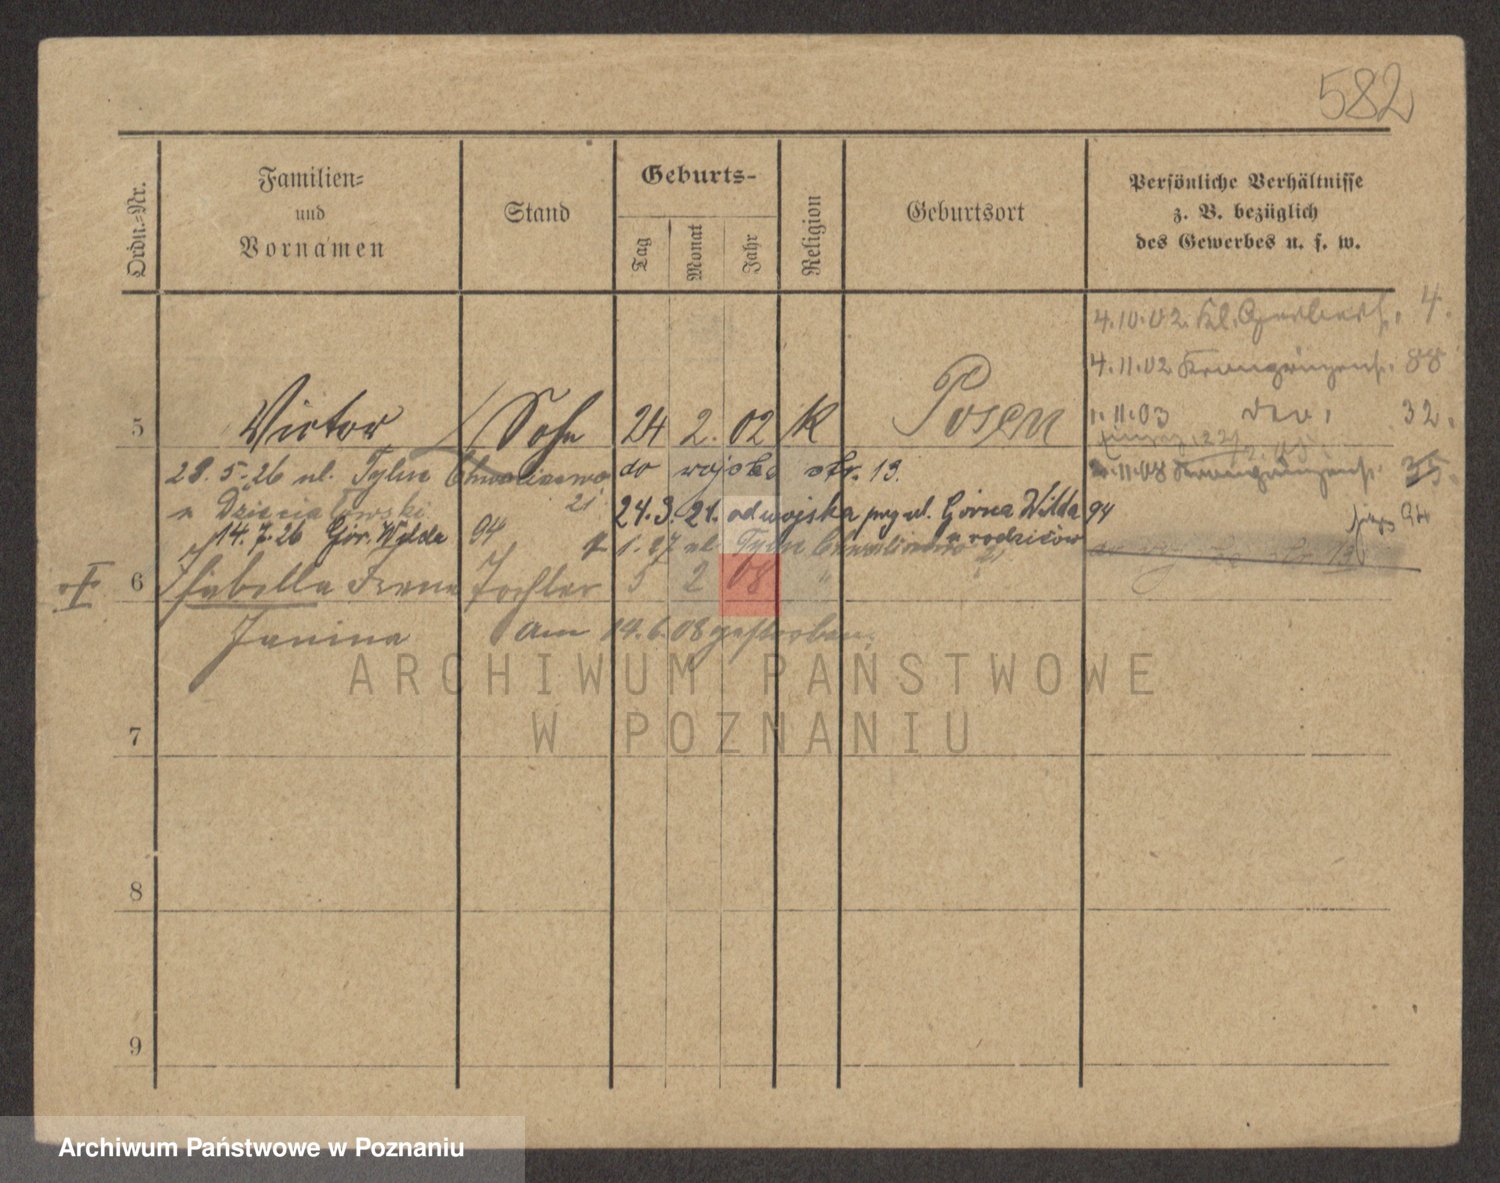 582
Ordn.-Nr.
Familien-
und
Vornamen
Stand
Geburts-
Tag
Monat
Jahr
Religion
Geburtsort
Persönliche Verhältnisse
z. B. bezüglich
des Gewerbes u. s. w.
4.10.02. Kl. Gerberst. 4.
4.11.02 88
5 Victor Sohn 24 2. 02 K Posen
1.11.03 32.
28.5.26 ul. Tylne Chwaliszewo 21
do wojska str. 13.
11.08 35.
24.3.21. od wojska przy ul. Górna Wilda 94
u rodziców
14.7.26 Gór. Wilda 94
1. 27 ul. Tylne Chwaliszewo 21
6 Isabella Irene Tochter 5 2 08 "
Janina am 14.6.08 gestorben.
7
8
9
ARCHIWUM PAŃSTWOWE
W POZNANIU
Archiwum Państwowe w Poznaniu